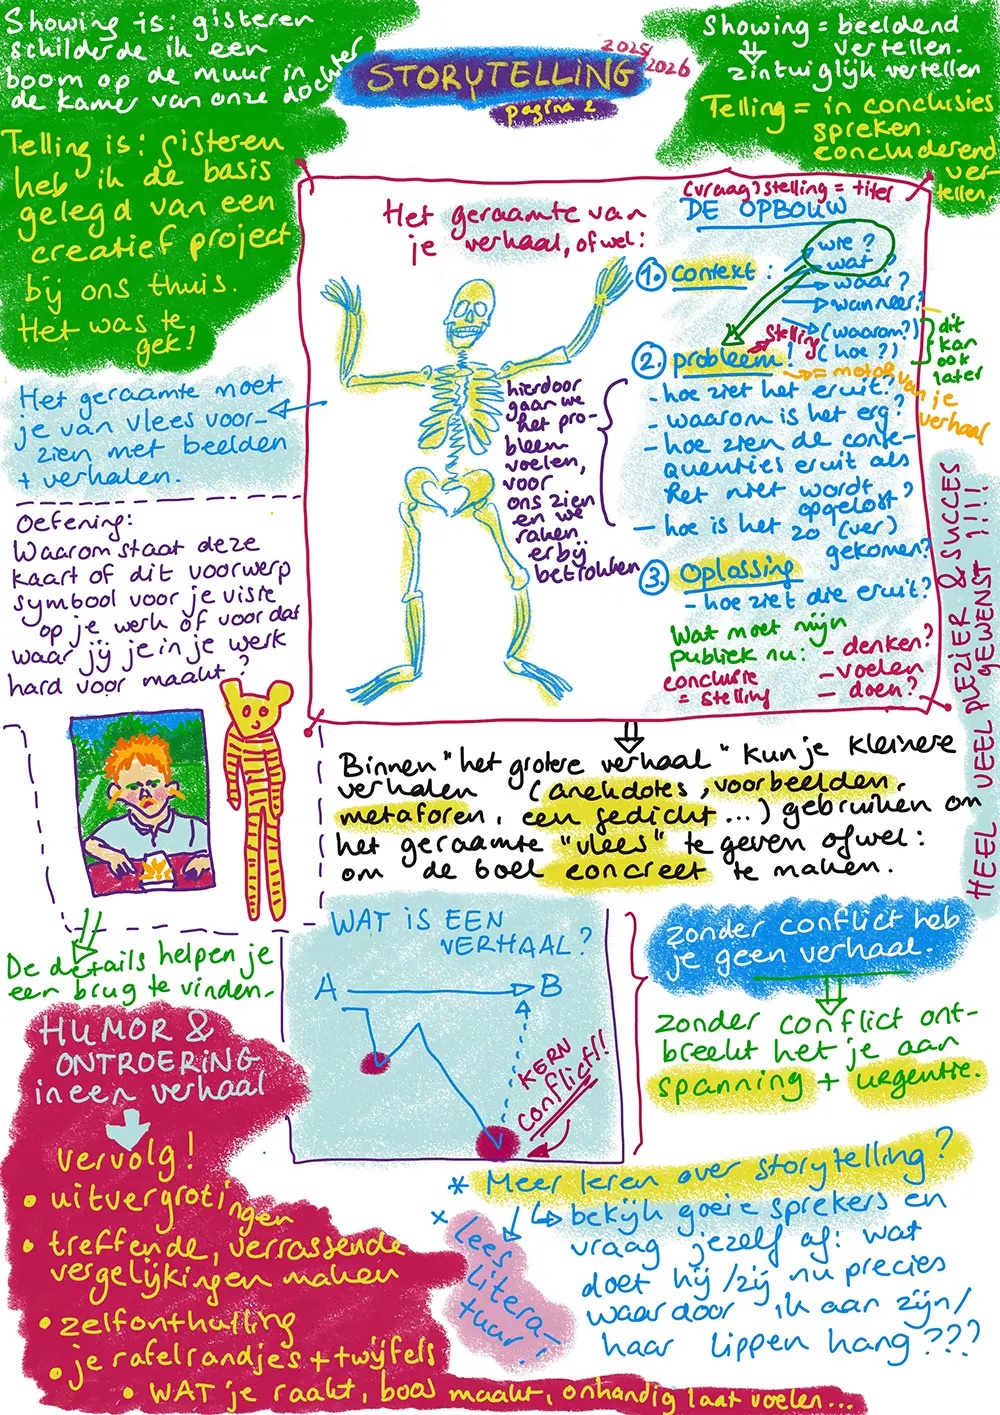 Showing is: gisteren
schilderde ik een
boom op de muur in
de kamer van onze dochter
STORYTELLING
2025/2026
pagina 2
Showing = beeldend
vertellen.
zintuiglijk vertellen
Telling = in conclusies
spreken.
concluderend
ver-
tellen.
Telling is: gisteren
heb ik de basis
gelegd van een
creatief project
bij ons thuis.
Het was te
gek!
Het geraamte van
je verhaal, ofwel:
(vraag)stelling = titel
DE OPBOUW
1. context:
wie?
wat?
waar?
wanneer?
(waarom?)
(hoe?)
dit
kan
ook
later
2. probleem!
stelling
= motor van je
verhaal
- hoe ziet het eruit?
- waarom is het erg?
- hoe zien de conse-
quenties eruit als
het niet wordt
opgelost?
- hoe is het zo (ver)
gekomen?
hierdoor
gaan we
het pro-
bleem
voelen,
voor
ons zien
en we
raken
erbij
betrokken
3. Oplossing
- hoe ziet die eruit?
Wat moet mijn
publiek nu:
- denken?
- voelen
- doen?
conclusie
= stelling
Het geraamte moet
je van vlees voor-
zien met beelden
+ verhalen.
Oefening:
Waarom staat deze
kaart of dit voorwerp
symbool voor je visie
op je werk of voor dat
waar jij je in je werk
hard voor maakt?
HEEL VEEL PLEZIER & SUCCES
GEWENST !!!!
Binnen "het grotere verhaal" kun je kleinere
verhalen (anekdotes, voorbeelden,
metaforen, een gedicht...) gebruiken om
het geraamte "vlees" te geven ofwel:
om de boel concreet te maken.
De details helpen je
een brug te vinden.
WAT IS EEN
VERHAAL?
A
B
KERN
conflict!!
zonder conflict heb
je geen verhaal.
zonder conflict ont-
breekt het je aan
spanning + urgentie.
HUMOR &
ONTROERING
in een verhaal
vervolg!
• uitvergrotingen
• treffende, verrassende
vergelijkingen maken
• zelfonthulling
• je rafelrandjes + twijfels
• WAT je raakt, boos maakt, onhandig laat voelen...
* Meer leren over storytelling?
bekijk goeie sprekers en
vraag jezelf af: wat
doet hij/zij nu precies
waardoor ik aan zijn/
haar lippen hang???
* Lees
litera-
tuur!